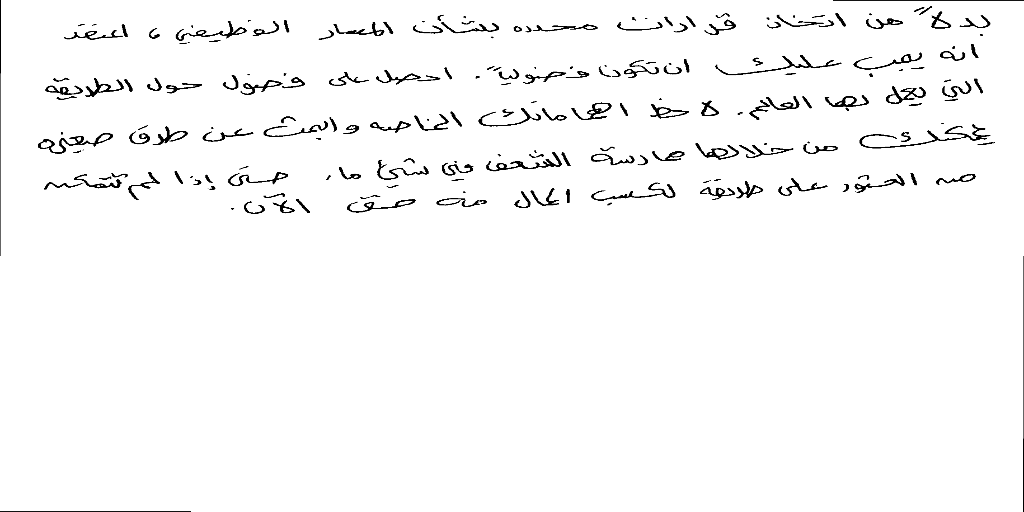 بدلاً من اتخاذ قرارات محدده بشأن المسار الوظيفي، اعتقد
انه يجب عليك ان تكون فضولياً. احصل على فضول حول الطريقة
التي يعمل بها العالم. لاحظ اهتماماتك الخاصه وابحث عن طرق صغيره
يمكنك من خلالها ممارسة الشغف في شيئ ما، حتى إذا لم تتمكن
من العثور على طريقة لكسب المال منه حتى الآن.